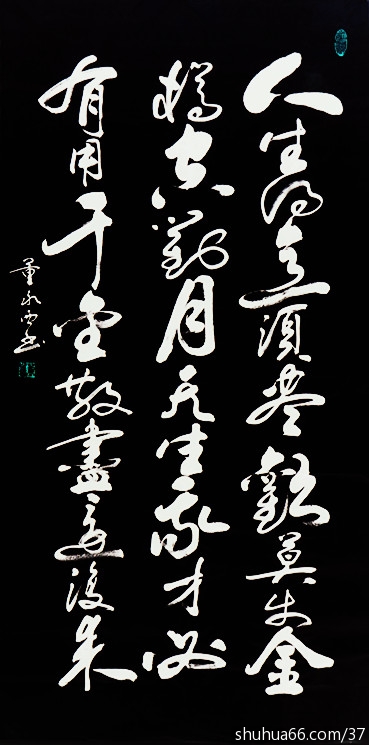 人生得意須尽歡莫使金
樽空對月天生我才必
有用千金散盡還復来
董永西书
shuhua66.com/37